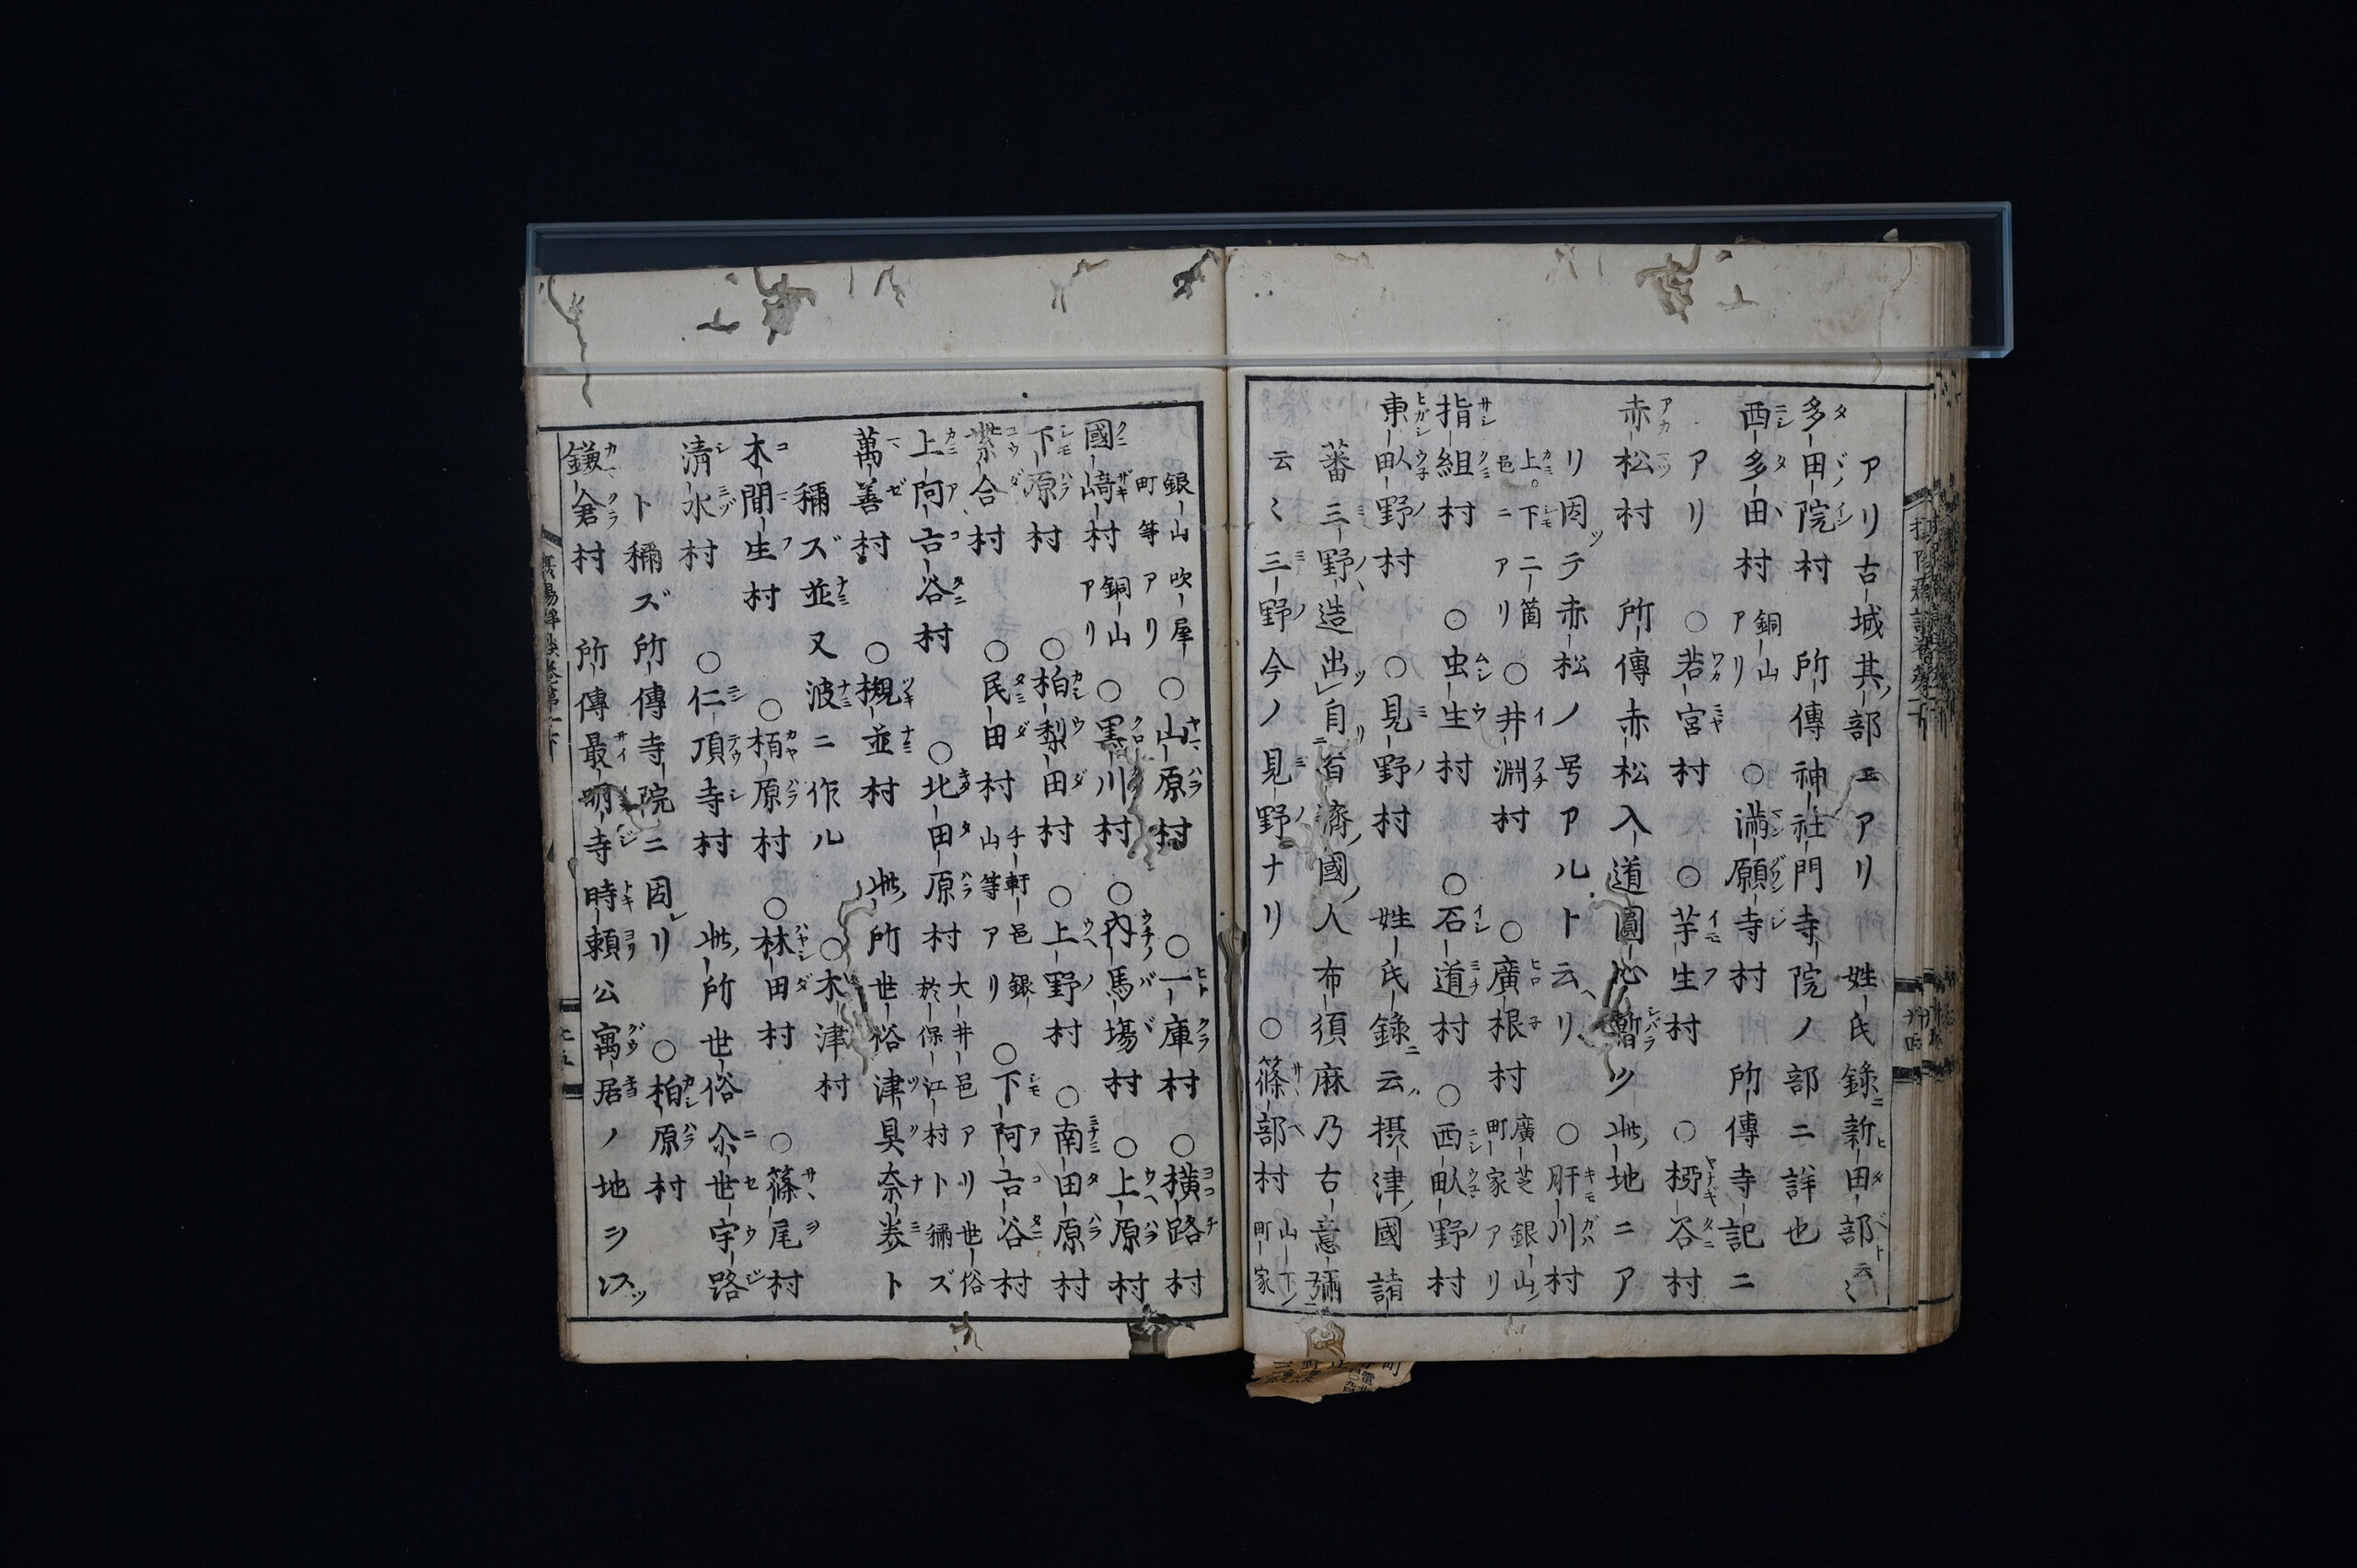 アリ古城其部ニモアリ 姓氏録ニ新田部ト云〻
多田院村 所傳神社門寺院ノ部ニ詳也
西多田村 銅山アリ ○満願寺村 所傳寺記ニ
アリ ○若宮村 ○芋生村 ○柳谷村
赤松村 所傳赤松入道圓心暫ツ此地ニア
リ因テ赤松ノ号アルト云ヘリ ○肝川村
上。下ニ箇邑ニアリ ○井淵村 ○廣根村 廣芝 銀山町家アリ
指組村 ○虫生村 ○石道村 ○西畝野村
東畝野村 ○見野村 姓氏録ニ云摂津國諸
蕃三野造出自百濟國人布須麻乃古意彌
云〻三野今ノ見野ナリ ○篠部村 山下町家
銀山 吹屋町等アリ ○山原村 ○一庫村 ○横路村
國崎村 銅山アリ ○黒川村 ○内馬場村 ○上原村
下原村 ○柏梨田村 ○上野村 ○南田原村
紫合村 ○民田村 千軒邑銀山等アリ ○下阿古谷村
上阿古谷村 ○北田原村 大井邑アリ世俗於保江村ト稱ズ
萬善村 ○槻並村 此所世俗津具奈美ト
稱ズ並又波ニ作ル ○木津村
木間生村 ○栢原村 ○林田村 ○篠尾村
清水村 ○仁頂寺村 此所世俗尒世宇路
ト稱ズ所傳寺院ニ因リ ○柏原村
鎌倉村 所傳最明寺時頼公寓居ノ地ヲ以ツ